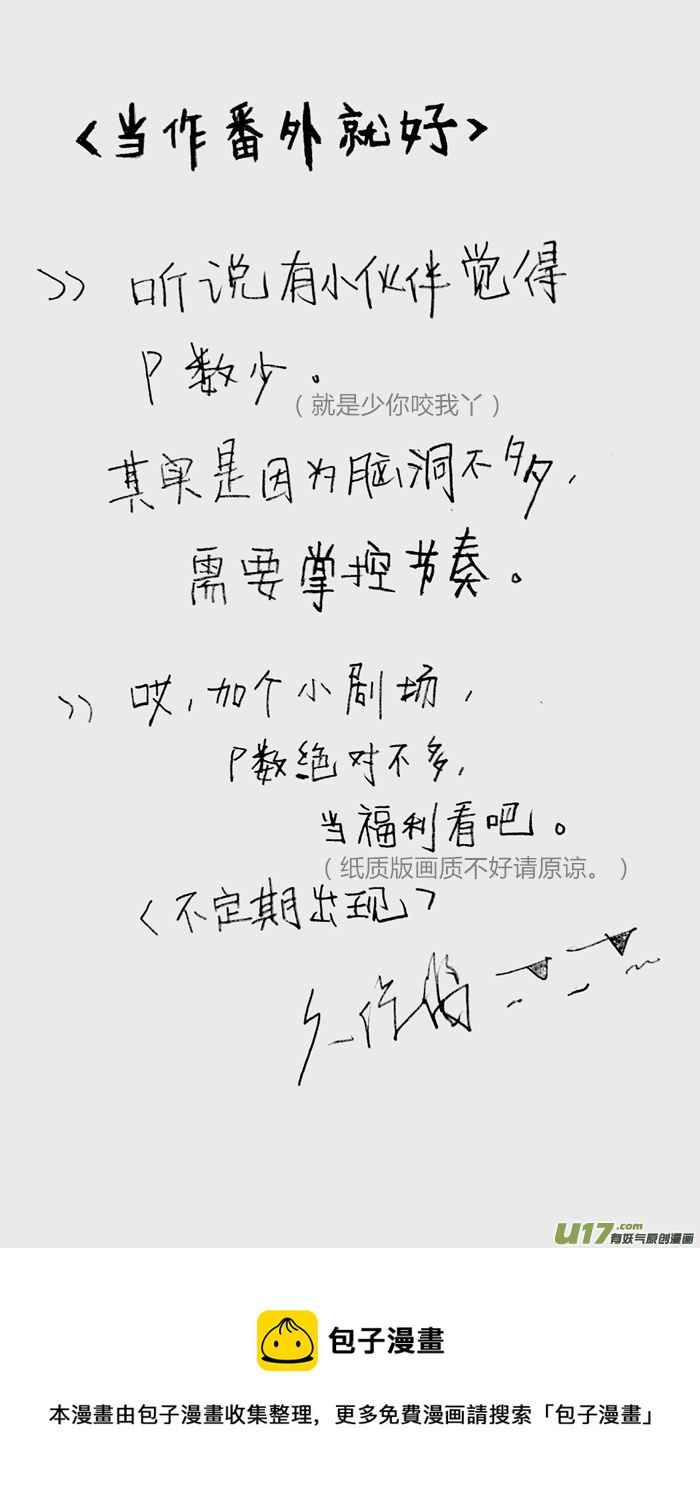 <当作番外就好>
>> 听说有小伙伴觉得
P数少。
（就是少你咬我丫）
其实是因为脑洞不多，
需要掌控节奏。
>> 哎，加个小剧场，
P数绝对不多，
当福利看吧。
（纸质版画质不好请原谅。）
<不定期出现>
U17.com
有妖气原创漫画
包子漫畫
本漫畫由包子漫畫收集整理，更多免費漫画請搜索「包子漫畫」